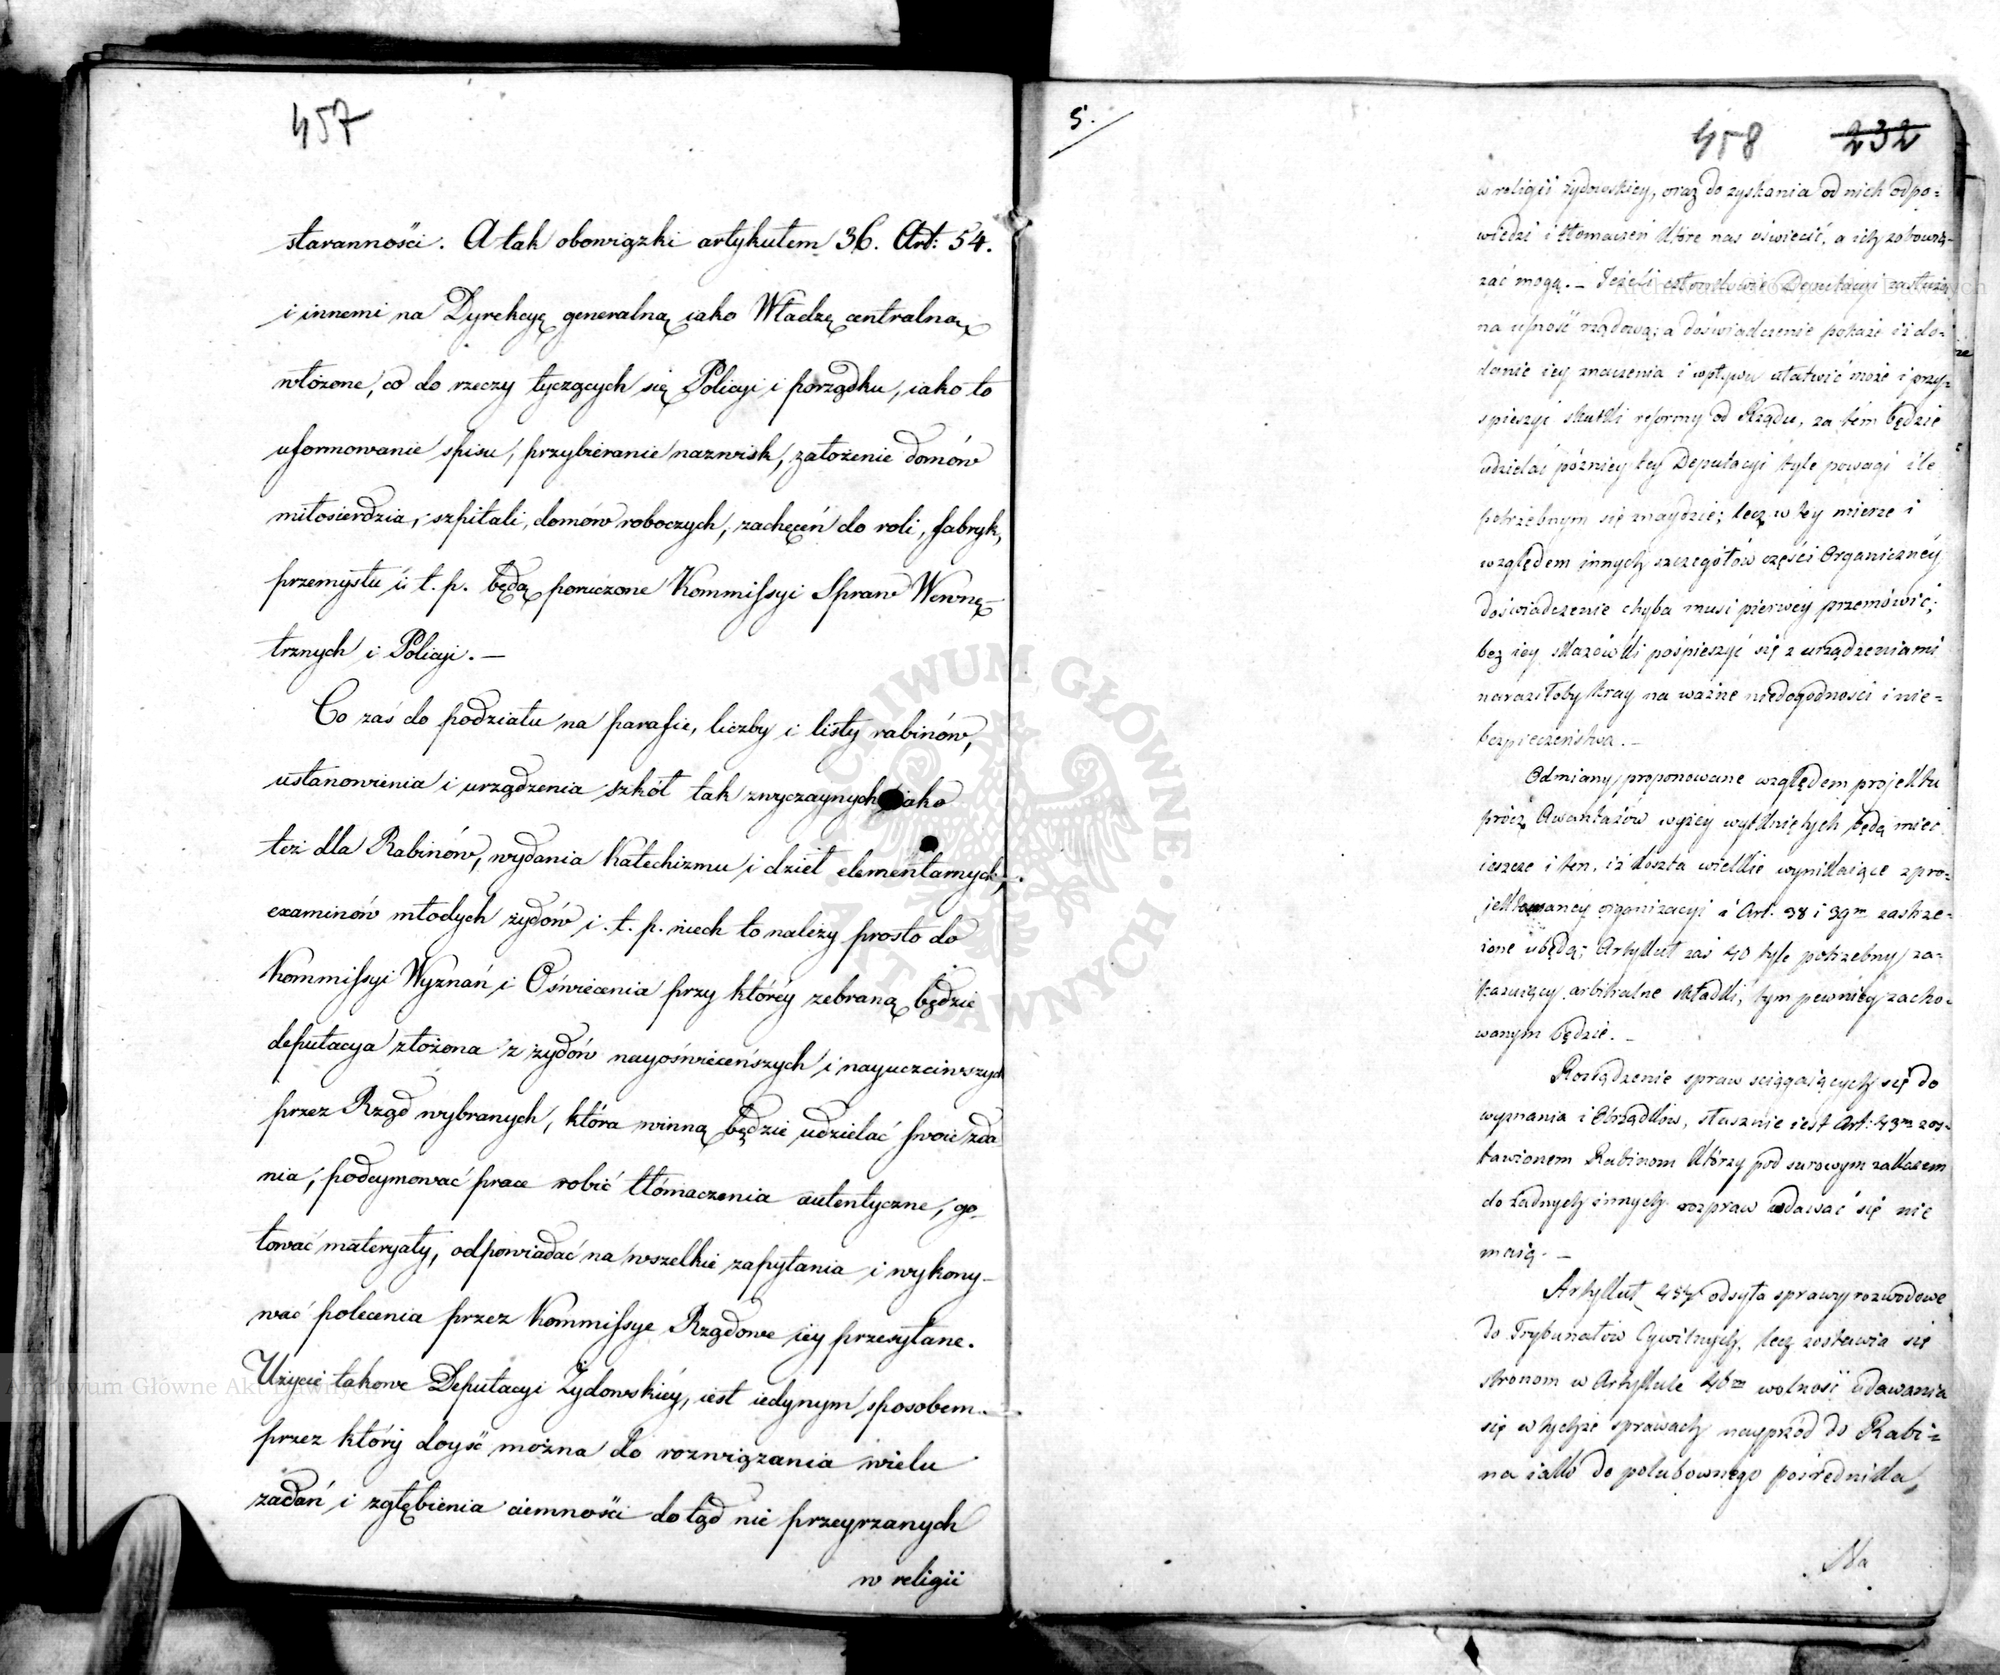 457
staranności. A tak obowiązki artykułem 36. Art: 54.
i innemi na Dyrekcyę generalną iako Władzę centralną
włożone, co do rzeczy tyczących się Policyi i porządku, iako to
uformowanie spisu, przybieranie nazwisk, założenie domów
miłosierdzia, szpitali, domów roboczych, zachęceń do roli, fabryk,
przemysłu i t. p. będą poruczone Kommissyi Spraw Wewnę-
trznych i Policyi. —
Co zaś do podziału na parafie, liczby i listy rabinów,
ustanowienia i urządzenia szkół tak zwyczaynych iako
też dla Rabinów, wydania Katechizmu i dzieł elementarnych,
examinów młodych żydów i. t. p. niech to należy prosto do
Kommissyi Wyznań i Oświecenia przy którey zebraną będzie
deputacya złożona z żydów nayoświeceńszych i nayuczciwszych
przez Rząd wybranych, która winną będzie udzielać swoie zda
nia, podeymować prace robić tłómaczenia autentyczne, go-
tować materyały, odpowiadać na wszelkie zapytania i wykony-
wać polecenia przez Kommissye Rządowe iey przesyłane.
Użycie takowe Deputacyi Żydowskiéy, iest iedynym sposobem
przez który doyść można do rozwiązania wielu
zadań i zgłębienia ciemności dotąd nie przeyrzanych
w religii
5.
458 232
w religii żydowskiey, oraz do zyskania od nich odpo=
wiedzi i tłomaczeń które nas oświecić, a ich zobowią-
zać mogą. — Jeżeli członkowie Deputacyi zasłużą
na ufność rządową; a doświadczenie pokaże iż do-
danie iey znaczenia i wpływu ułatwić może i przy-
spieszyć skutki reformy od Rządu, za tem będzie
udzielać późniey tey Deputacyi tyle powagi ile
potrzebnym się znaydzie; lecz w tey mierze i
względem innych szczegółów części Organicznéy
doświadczenie chyba musi pierwey przemówić;
bez iey skazówki pośpieszyć się z urządzeniami
naraziłoby kray na ważne niedogodności i nie=
bezpieczeństwa. —
Odmiany proponowane względem projektu
prócz Awantażów wyżey wytkniętych będą mieć
ieszcze i ten, iż koszta wielkie wynikaiące z pro=
jektowanéy organizacyi i Art. 38 i 39m zastrze-
żone ubędą; Artykuł zaś 40 tyle potrzebny za-
kazuiący arbitralne składki, tym pewniéy zacho-
wanym będzie. —
Rozsądzenie spraw sciągaiących się do
wyznania i Obrządków, słusznie iest Art: 43m zos-
tawionem Rabinom którzy pod surowym zakazem
do żadnych innych rozpraw wdawać się nie
maią. —
Artykuł 45ty odsyła sprawy rozwodowe
do Trybunałów Cywilnych, lecz zostawia się
stronom w Artykule 46m wolność udawania
się w tychże sprawach naypród do Rabi=
na iako do polubownego pośrednika,
Na
ARCHIWUM GŁÓWNE AKT DAWNYCH
Archiwum Główne Akt Dawnych
Archiwum Główne Akt Dawnych